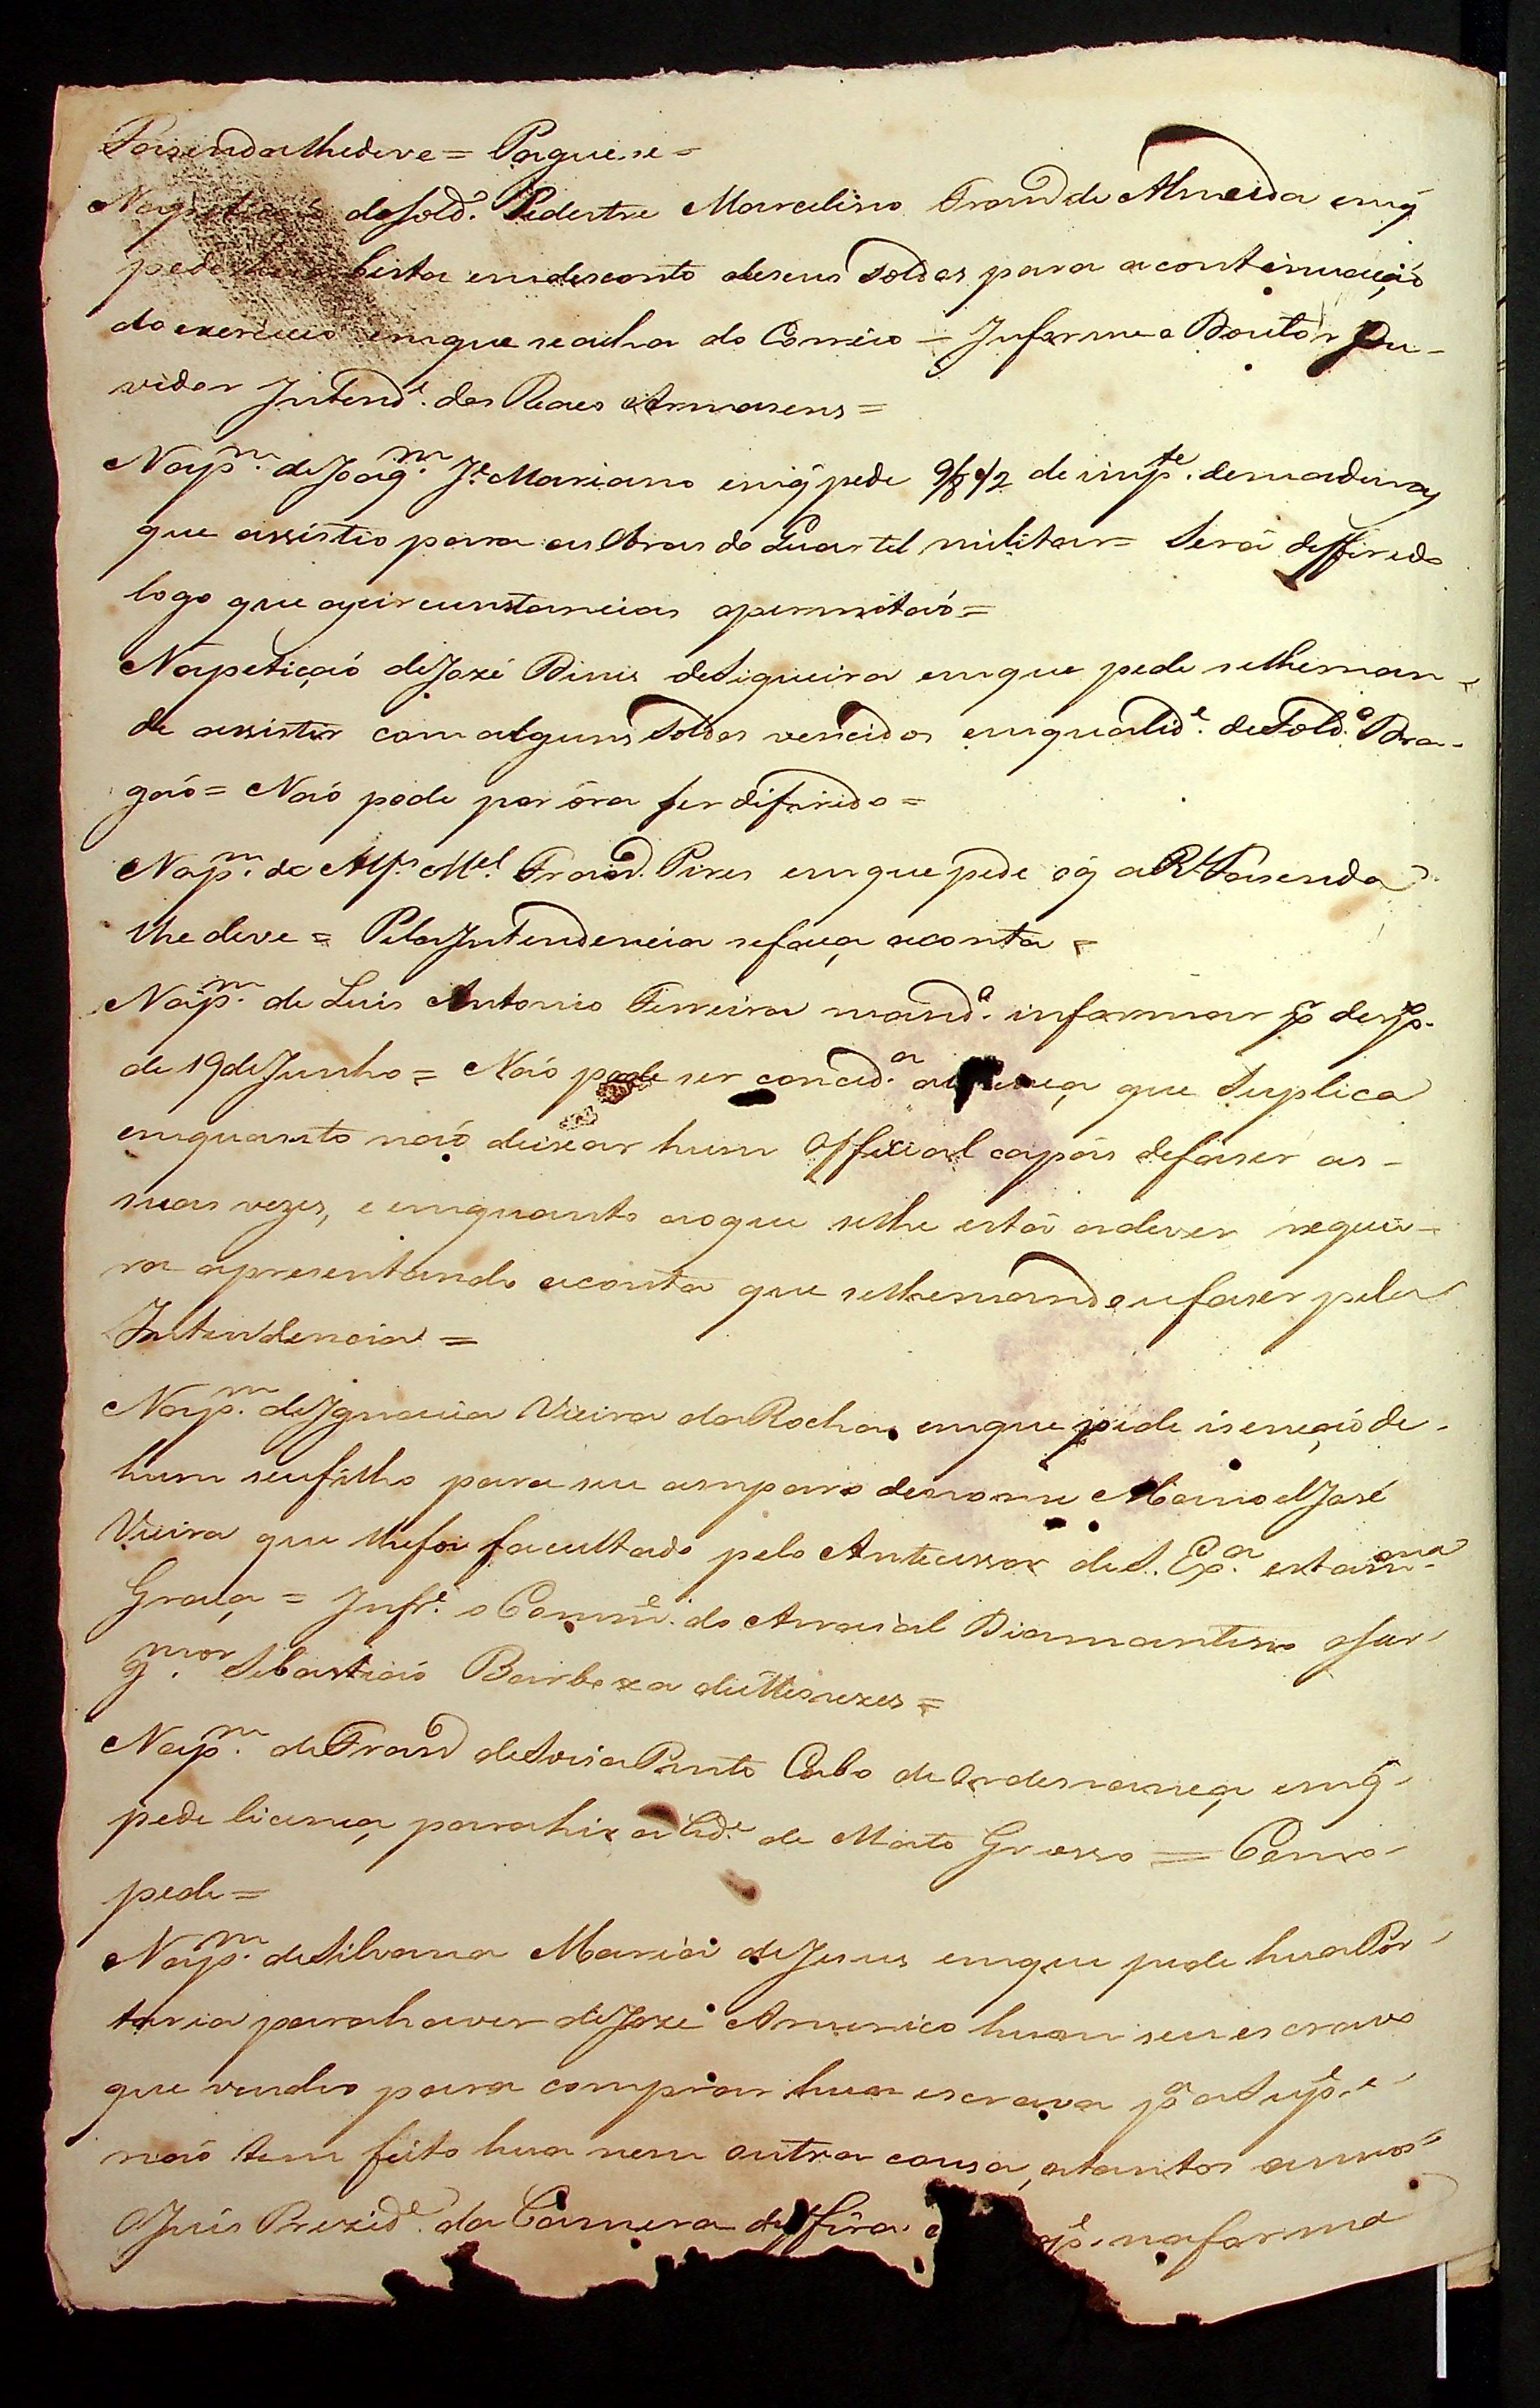 Fasenda lhe deve = Pague-se =
Na petiçaõ do Sold.º Pedestre Marcelino Fran.co de Almeida em q̃
pede besta em desconto de seus Soldos para a continuaçaõ
do exercicio em que se acha do Correio = Informe o Doutor Ou-
vidor Intend.e dos Reaes Armasens =
Na p.m de Joaq.m J.e Mariano em q̃ pede 9/8 1/2 de imp.te de madeiras
que assistio para as Obras do Quartel militar = Será defferido
logo que as circunstancias o permitaõ =
Na petiçaõ de Jozé Dinis de Siqueira em que pede se lhe man-
de assistir com alguns Soldos vencidos em qualid.e de Sold.º Dra-
gaõ = Naõ pode por óra ser difirido =
Na p.m do Alf.s M.el Fran.co Pires em que pede o q̃ a R.l Fasenda
lhe deve = Pela Intendencia se faça a conta =
Na p.m de Luis Antonio Ferreira mand.a informar p̃ desp.o
de 19 de Junho = Naõ pode ser conced.a a que Suplica
emquanto naõ deixar hum Official capás de faser as
suas vezes, e emquanto ao que se lhe está a dever requei-
ra apresentando a conta que se lhe mandou faser pela
Intendencia =
Na p.m de Ignacia Vieira da Rocha em que pede isençaõ de
hum seu filho para seu amparo de nome Manoel José
Vieira que lhe foi facultado pelo Antecessor de S. Ex.a esta m.ma
Graça = Inf.e o Comm.e do Arraial Diamantino o Sar-
g.mor Sebastiaõ Barboza de Menezes =
Na p.m de Fran.co de Sousa Pinto Cabo de Ordenança em q̃
pede licença para hir a Cid.e de Mato Grosso = Como
pede =
Na p.m de Silvana Maria de Jesus em que pede hua Por-
taria para haver de Jozé Americo hum seu escravo
que vendeo para comprar hua escrava p.a a Sup.e e
naõ tem feito hua nem outra cousa, a tantos annos =
O Juis Prezid.e da Camera deffira p.e na forma